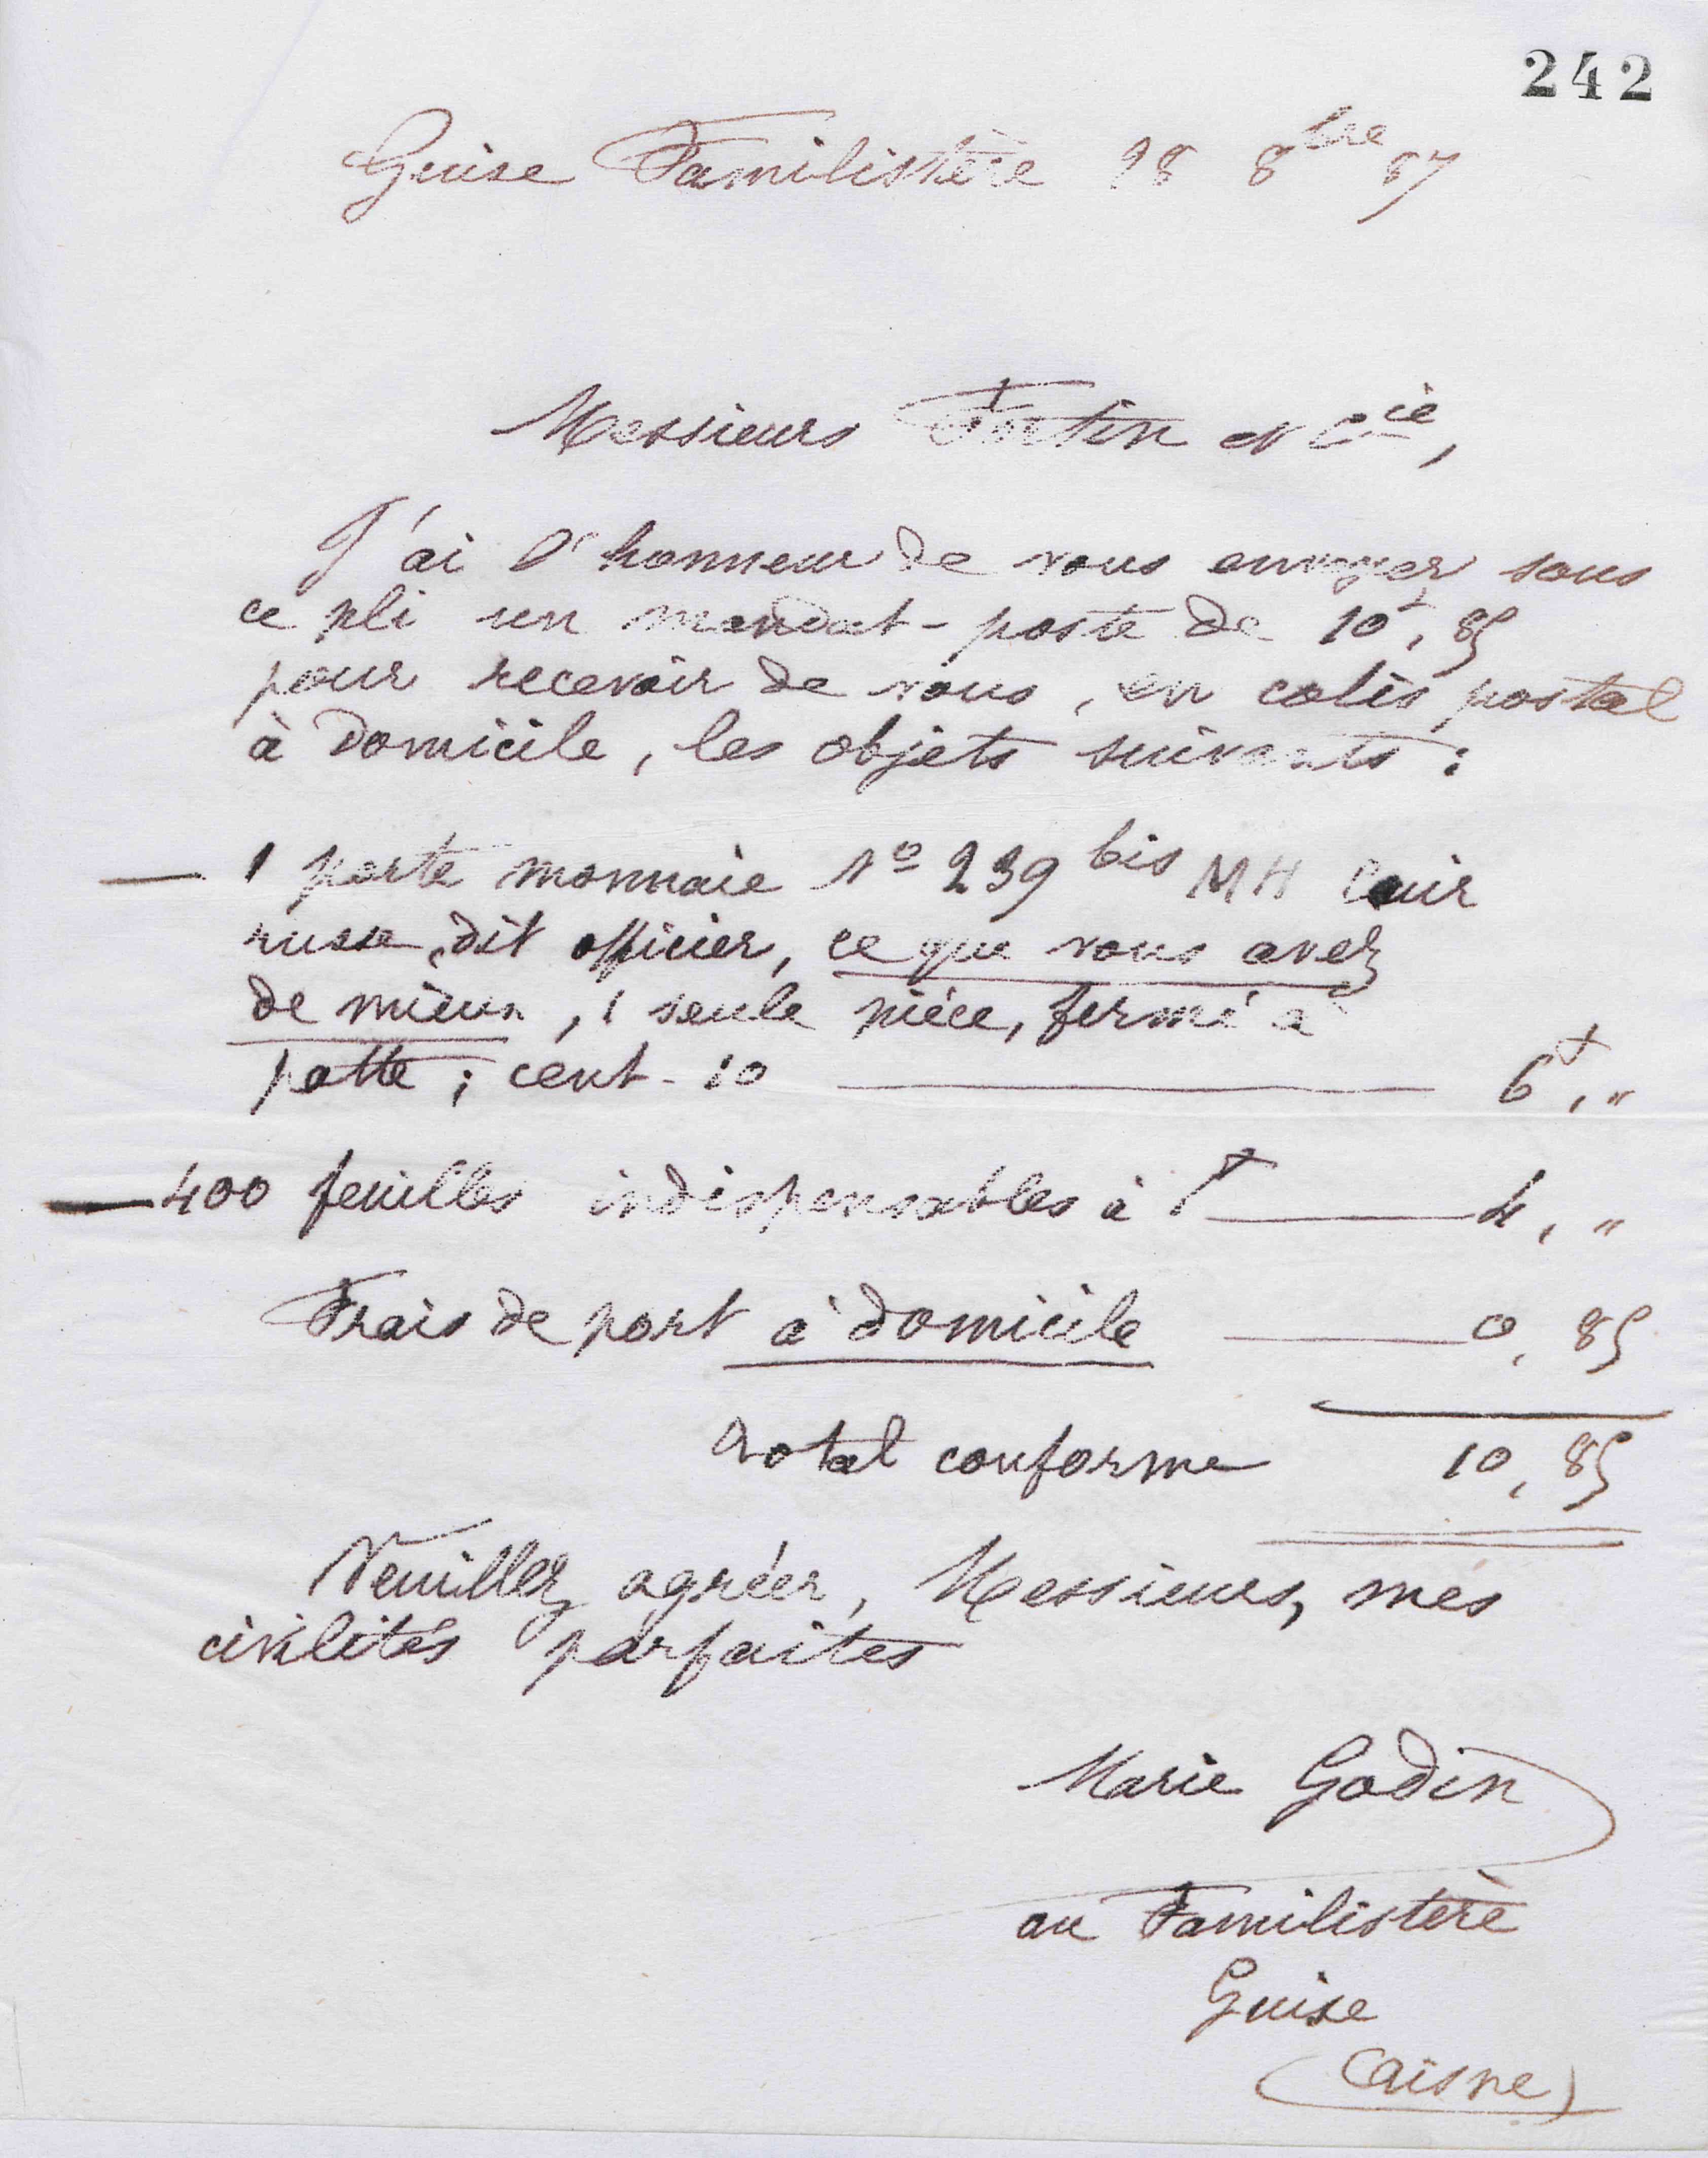 242
Guise Familistère 28 8bre 87
Messieurs Fortin et Cie,
J'ai l'honneur de vous envoyer sous
ce pli un mandat-poste de 10f,85
pour recevoir de vous, en colis postal
à domicile, les objets suivants :
— 1 porte monnaie No 239 bis MH Cuir
russe, dit officier, ce que vous avez
de mieux, 1 seule pièce, fermé à
patte ; cent. 10 — 6f,"
— 400 feuilles indispensables à 1f — 4,"
Frais de port à domicile — 0,85
Total conforme 10,85
Veuillez agréer, Messieurs, mes
civilités parfaites
Marie Godin
au Familistère
Guise
(Aisne)